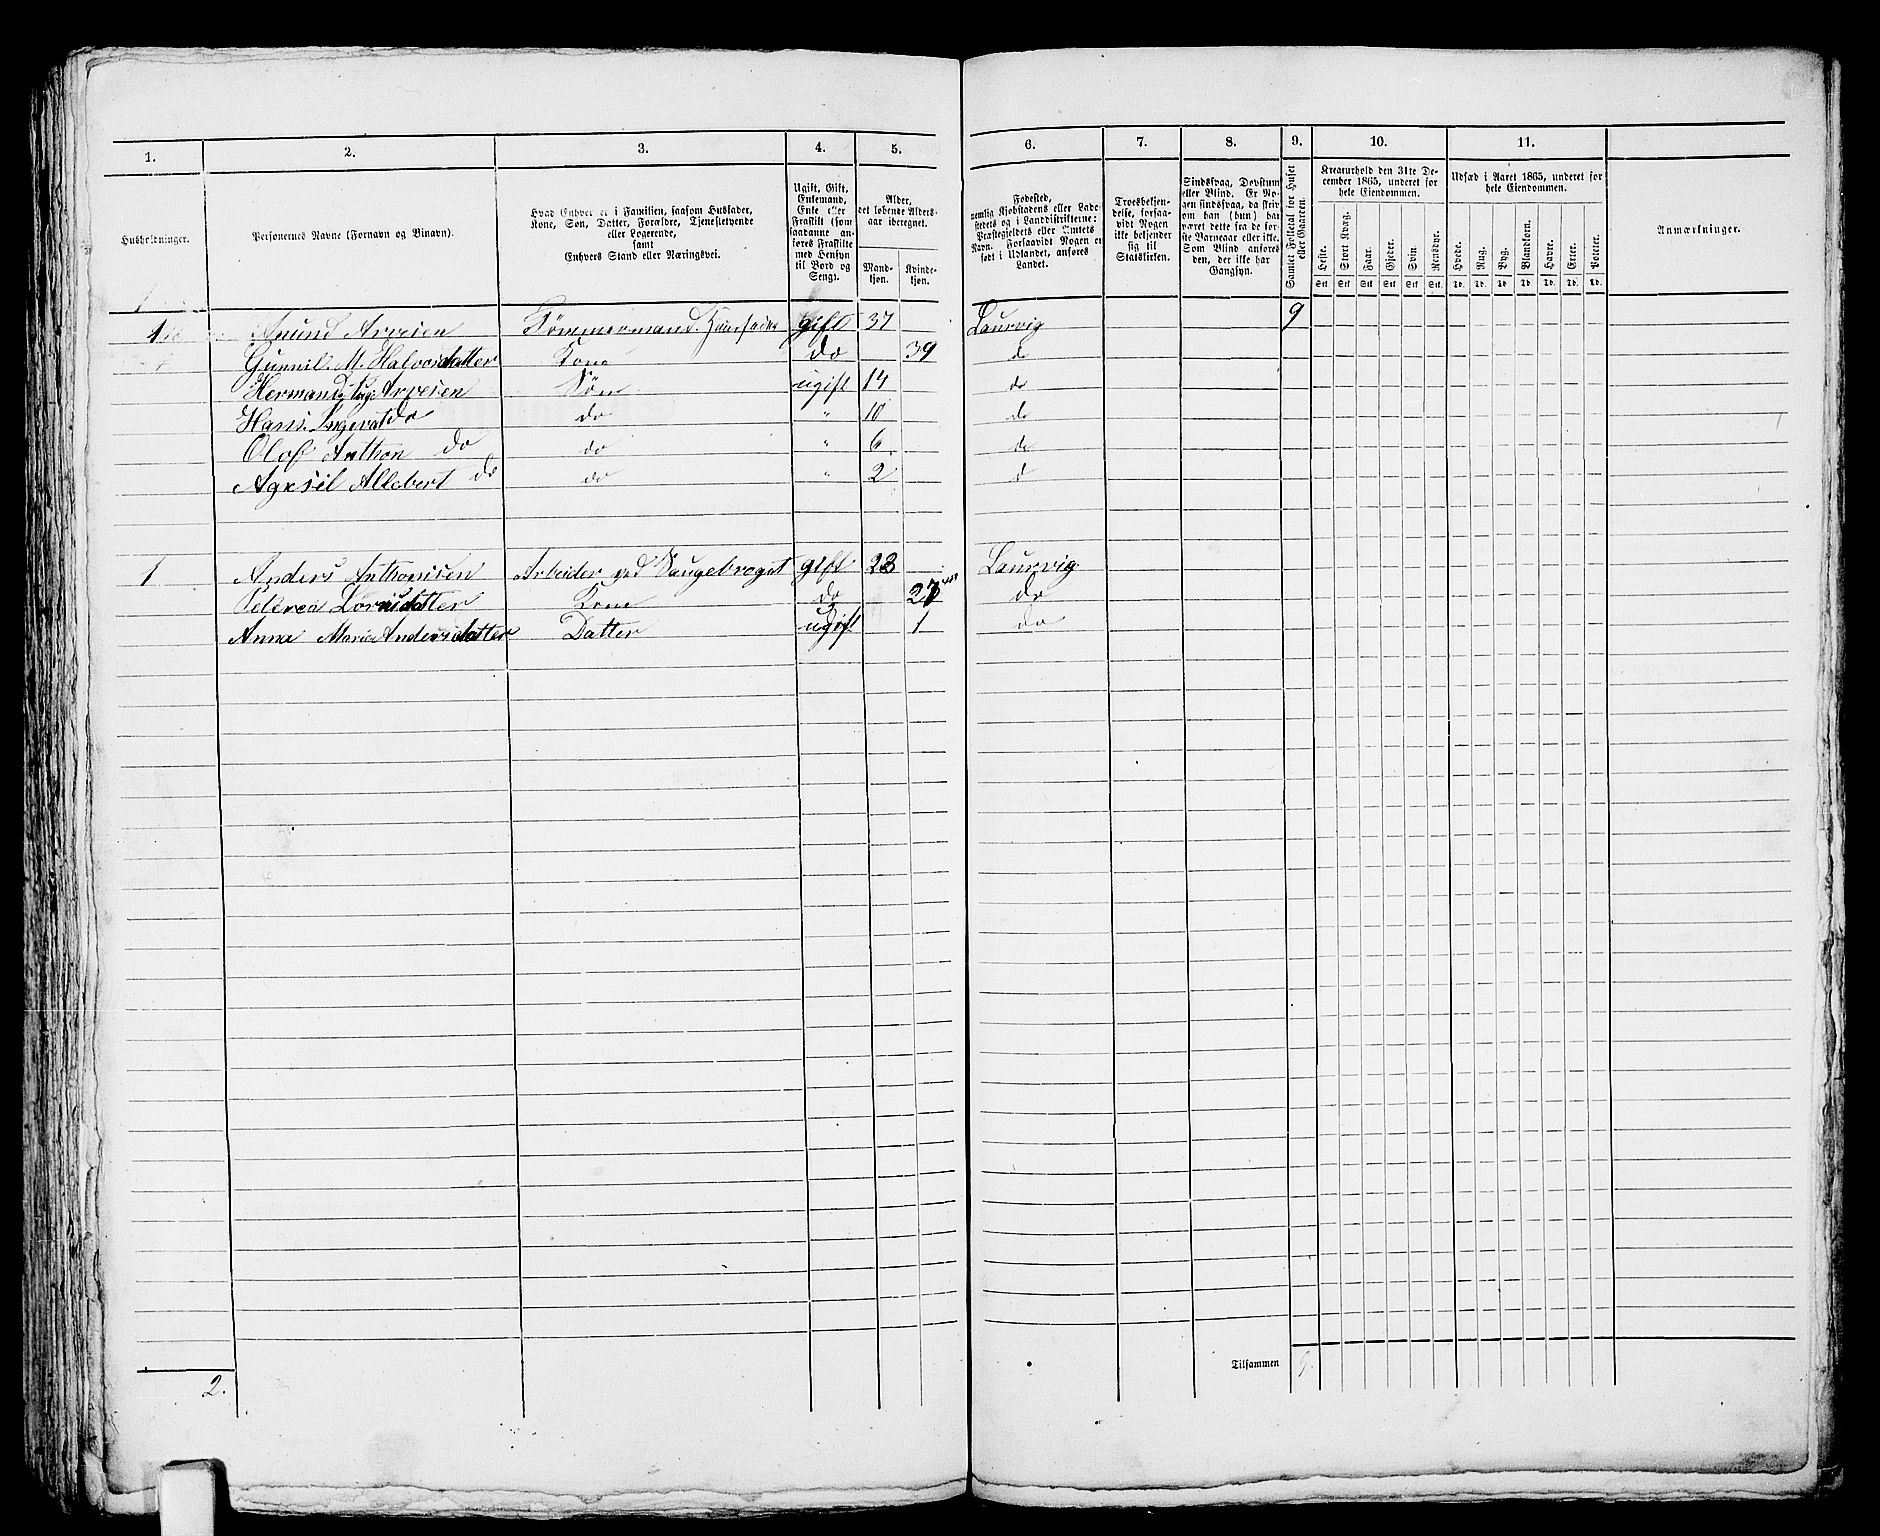 1. 2. 3. 4. 5. 6. 7. 8. 9. 10. 11.
Husholdninger.
Personernes Navne (Fornavn og Binavn).
Hvad Enhver er i Familien, saasom Husfader,
Kone, Søn, Datter, Forældre, Tjenestetyende
eller Logerende,
samt
Enhvers Stand eller Næringsvei.
Ugift, Gift,
Enkemand,
Enke eller
Fraskilt (som
saadanne an-
føres Fraskilte
med Hensyn
til Bord og
Seng).
Alder,
det løbende Alders-
aar iberegnet.
Mand-
kjøn.
Kvinde-
kjøn.
Fødested,
nemlig Kjøbstadens eller Lade-
stedets og i Landdistrikterne:
Præstegjeldets eller Amtets
Navn. Forsaavidt Nogen er
født i Udlandet, anføres
Landet.
Troesbekjen-
delse, forsaa-
vidt Nogen
ikke bekjender
sig til
Statskirken.
Sindssvag, Døvstum
eller Blind. Er No-
gen sindssvag, da skriv
om han (hun) har
været dette fra de før-
ste Barneaar eller ikke.
Som Blind anføres
den, der ikke har
Gangsyn.
Samlet Folketal for Huset
eller Gaarden.
Kreaturhold den 31te De-
cember 1865, underet for
hele Eiendommen.
Heste. Stort Kvæg. Faar. Gjeder. Svin. Rensdyr.
Stk Stk Stk Stk Stk Stk.
Udsæd i Aaret 1865, underet for
hele Eiendommen.
Hvede. Rug. Byg. Blandkorn. Havre. Erter. Poteter.
Td. Td. Td Td. Td. Td. Td.
Anmærkninger.
1 Anund Arvesen Tømmermand. Huusfader gift 37 Laurvig 9
Gunnil. M. Halvorsdatter Kone do 39 do
Hermand Arvesen Søn ugift 14 do
Hans Ingevat do do " 10 do
Olof Anthon do do " 6 do
Agesil Allebert do do " 2 do
1 Anders Anthonisen Arbeider ved Saugebruget gift 23 Laurvig
Petrea Larsdatter Kone do 27 do
Anna Marie Andersdatter Datter ugift 1 do
Tilsammen 9.
2.